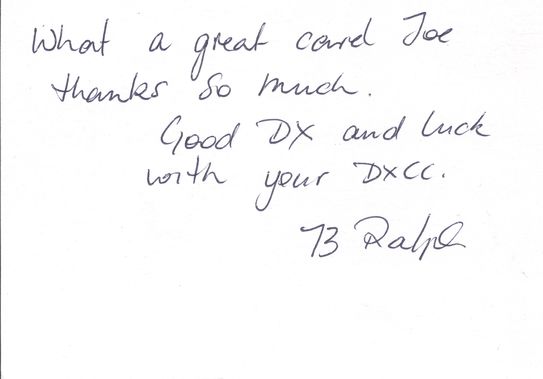 What a great card Joe
thanks so much.
Good DX and luck
with your DXCC.
73 Ralph